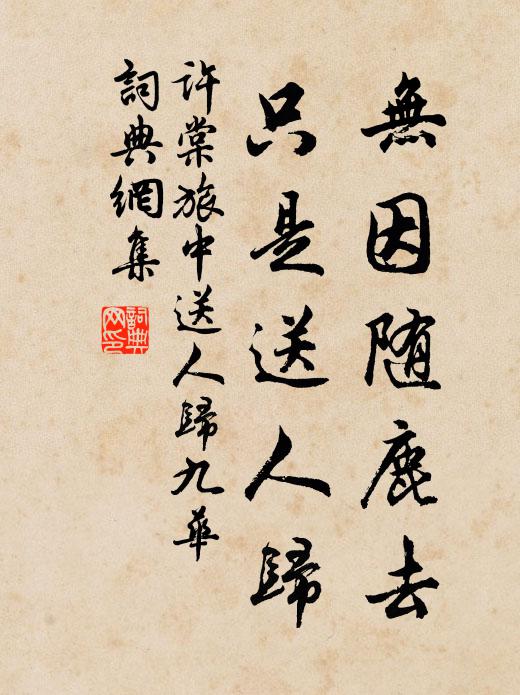 無因随鹿去
只是送人歸
許棠旅中送人歸九華
詞典網集
詞典网印